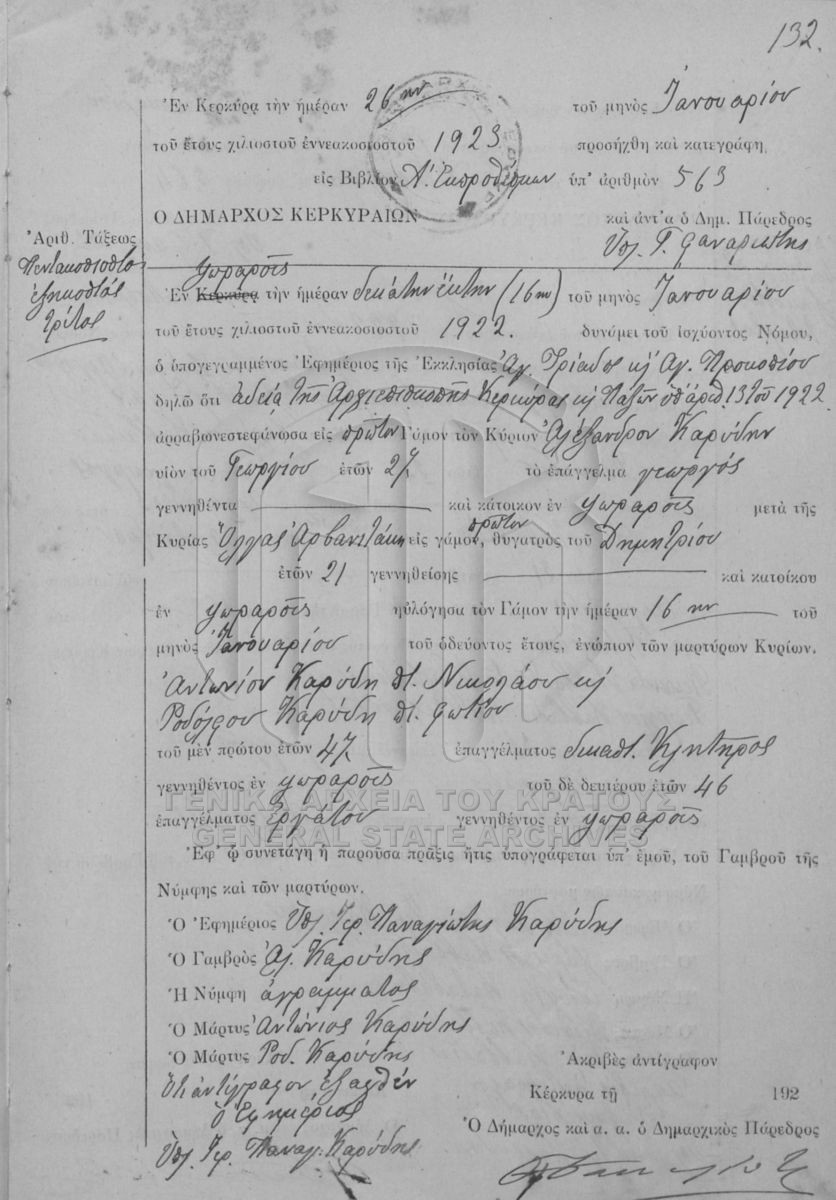 132.
Ἐν Κερκύρᾳ τὴν ἡμέραν 26ην τοῦ μηνὸς Ἰανουαρίου
τοῦ ἔτους χιλιοστοῦ ἐννεακοσιοστοῦ 1923 προσήχθη καὶ κατεγράφη
εἰς Βιβλίον Α΄. Ἐκπροθέσμων ὑπ' ἀριθμὸν 563
Ο ΔΗΜΑΡΧΟΣ ΚΕΡΚΥΡΑΙΩΝ καὶ ἀντ'α ὁ Δημ. Πάρεδρος
Ὑπ. Γ. Φαναριώτης
Ἀριθ. Τάξεως
Πεντακοσιοστὸς
ἑξηκοστὸς
τρίτος
Ψωραροῖς
Ἐν Κερκύρᾳ τὴν ἡμέραν δεκάτην ἕκτην (16ην) τοῦ μηνὸς Ἰανουαρίου
τοῦ ἔτους χιλιοστοῦ ἐννεακοσιοστοῦ 1922. δυνάμει τοῦ ἰσχύοντος Νόμου,
ὁ ὑπογεγραμμένος Ἐφημέριος τῆς Ἐκκλησίας Ἁγ. Τριάδος κ Ἁγ. Προκοπίου
δηλῶ ὅτι ἀδείᾳ τῆς Ἀρχιεπισκοπῆς Κερκύρας κ Παξῶν ὑπ' ἀριθ. 13 τοῦ 1922
ἀρραβωνεστεφάνωσα εἰς πρῶτον Γάμον τὸν Κύριον Ἀλέξανδρον Καρύδην
υἱὸν τοῦ Γεωργίου ἐτῶν 27 τὸ ἐπάγγελμα γεωργός
γεννηθέντα καὶ κάτοικον ἐν Ψωραροῖς μετὰ τῆς
Κυρίας Ὄλγας Ἀρβανιτάκη εἰς γάμον πρῶτον, θυγατρὸς τοῦ Δημητρίου
ἐτῶν 21 γεννηθείσης καὶ κατοίκου
ἐν Ψωραροῖς ηὐλόγησα τὸν Γάμον τὴν ἡμέραν 16ην τοῦ
μηνὸς Ἰανουαρίου τοῦ ὁδεύοντος ἔτους, ἐνώπιον τῶν μαρτύρων Κυρίων.
Ἀντωνίου Καρύδη π. Νικολάου κ
Ροδόλφου Καρύδη π. Φωτίου
τοῦ μὲν πρώτου ἐτῶν 47 ἐπαγγέλματος δικαστ. Κλητῆρος
γεννηθέντος ἐν Ψωραροῖς τοῦ δὲ δευτέρου ἐτῶν 46
ἐπαγγέλματος ἐργάτου γεννηθέντος ἐν Ψωραροῖς
ΓΕΝΙΚΑ ΑΡΧΕΙΑ ΤΟΥ ΚΡΑΤΟΥΣ
GENERAL STATE ARCHIVES
Ἐφ' ᾧ συνετάγη ἡ παροῦσα πρᾶξις ἥτις ὑπογράφεται ὑπ' ἐμοῦ, τοῦ Γαμβροῦ τῆς
Νύμφης καὶ τῶν μαρτύρων.
Ὁ Ἐφημέριος Ὑπ. Ἱερ. Παναγιώτης Καρύδης
Ὁ Γαμβρὸς Ἀλ. Καρύδης
Ἡ Νύμφη ἀγράμματος
Ὁ Μάρτυς Ἀντώνιος Καρύδης
Ὁ Μάρτυς Ροδ. Καρύδης
Ὅτι ἀντίγραφον ἐξαχθέν
Ὁ Ἐφημέριος
Ὑπ. Ἱερ. Παναγ. Καρύδης
Ἀκριβὲς ἀντίγραφον
Κέρκυρα τῇ 192
Ὁ Δήμαρχος καὶ α. α. ὁ Δημαρχικὸς Πάρεδρος